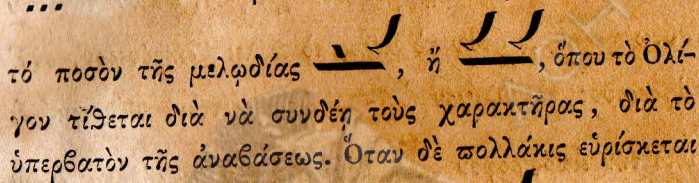 τό ποσὸν τῆς μελῳδίας , ἤ , ὅπου τὸ Ὀλί-
γον τίθεται διὰ νὰ συνδέῃ τοὺς χαρακτῆρας, διὰ τὸ
ὑπερβατὸν τῆς ἀναβάσεως. Ὅταν δὲ πολλάκις εὑρίσκεται